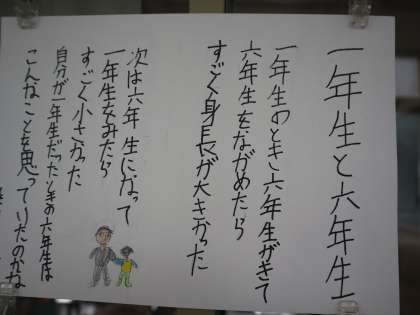 一年生と六年生
一年生のとき六年生がきて
六年生をながめたら
すごく身長が大きかった
次は六年生になって
一年生をみたら
すごく小さかった
自分が一年生だったときの六年生は
こんなことを思っていたのかな